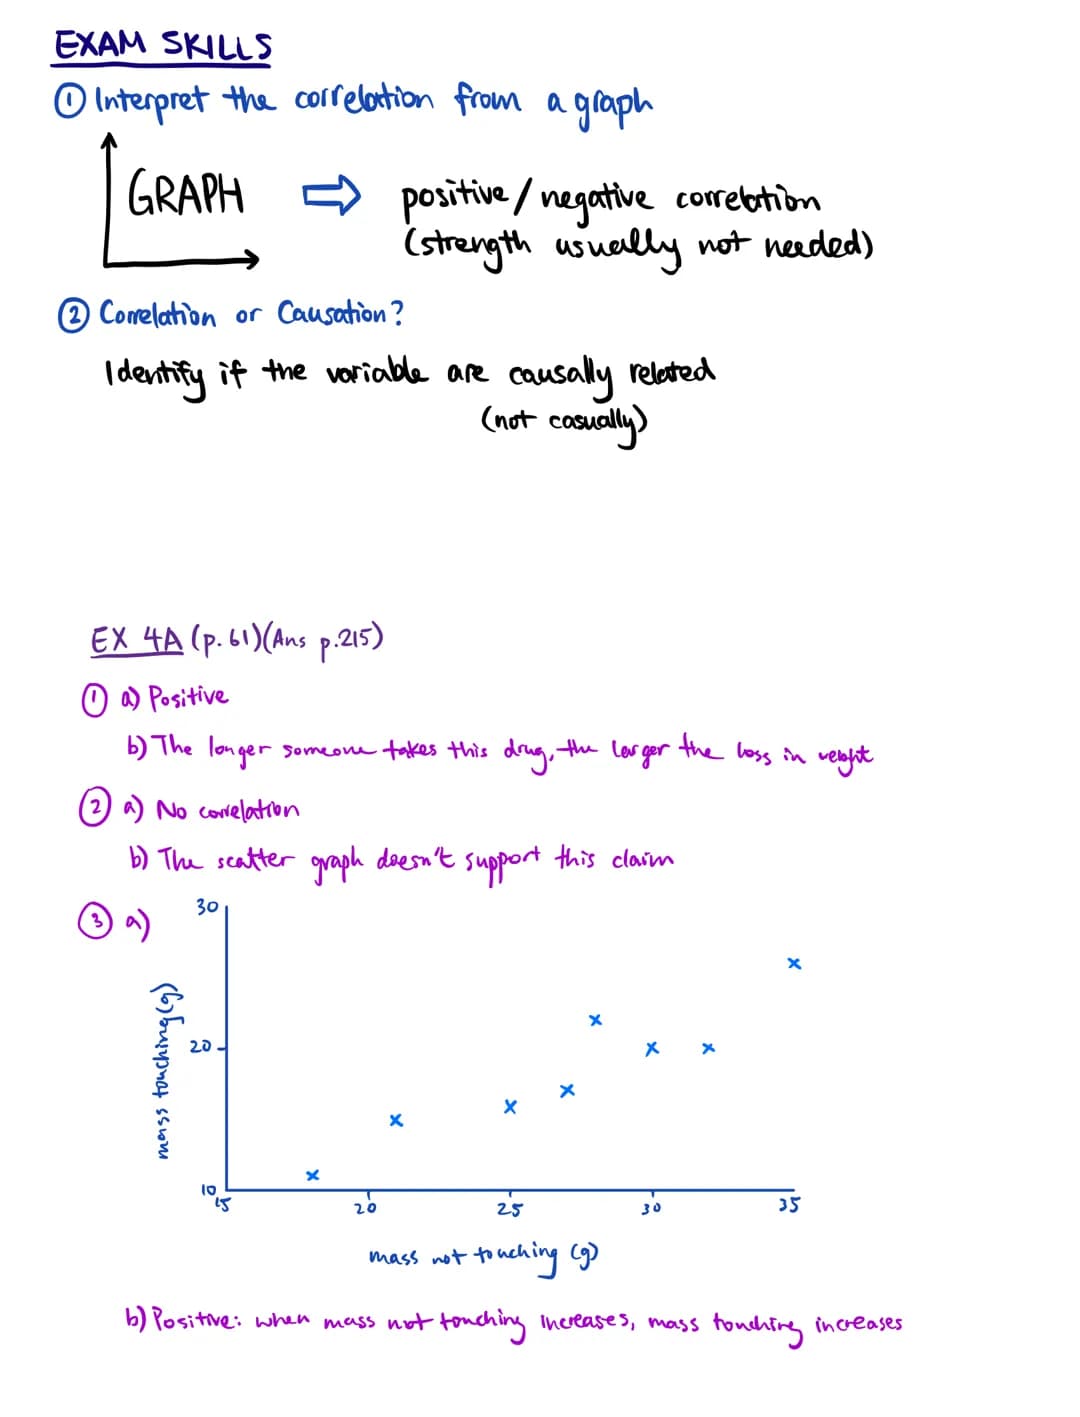 EXAM SKILLS
① Interpret the correlation from a graph
GRAPH ⇨ positive/negative correlation
(strength usually not needed)
② Correlation or Causation?
Identify if the variable are causally related
(not casually)
EX 4A (p.61)(Ans p.215)
① a) Positive
b) The longer someone takes this drug, the larger the loss in weight
② a) No correlation
b) The scatter graph doesn't support this claim
③ a)
30
20
10
mass touching(g)
15 20 25 30 35
mass not touching (g)
b) Positive: when mass not touching increases, mass touching increases